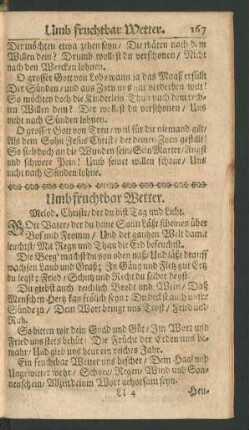 Umb fruchtbar Wetter. 167
Der möchten etwa zehen seyn / Die thäten nach dem
Willen dein? Drumb wollst du verschonen / Nicht
nach den Wercken lohnen.
O grosser Gott von Lob / wann ja das Maaß erfüllt
Der Sünden / und aus Zorn uns gar verderben wilt!
So möchten doch die Kinderlein Thun nach dem rech-
ten Willen dein? Da wollest du verschonen / Uns
nicht nach Sünden lohnen.
O grosser Gott von Treu / weil für dir niemand gilt /
Als dein Sohn Jesus Christ / der deinen Zorn gestillt /
So sieh doch an die Wunden sein / Sein Marter / Angst
und schwere Pein! Umb seinet willen schone / Uns
nach Sünden lohne.
Umb fruchtbar Wetter.
Melod. Christe / der du bist Tag und Licht.
GOtt Vater / der du deine Sonn Läst scheinen über
Bös und Fromm / Und der gantzen Welt damit
leuchtst / Mit Regn und Thau die Erd befeuchtst.
Die Berg machst du von oben naß / Und läst drauff
wachsen Laub und Graß / In Gäng und
du legst / Fried / Schutz und Recht du selber hegst.
Du giebst auch reichlich Brodt und Wein / Daß
Menschen Hertz kan frölich seyn / Du deckst auch unser
Sünde zu / Dein Wort bringt uns Trost / Fried und
Ruh.
So bitten wir dein Gnad und Güt / Im Wort und
Fried uns stets behüt / Die Früchte der Erden uns be-
wahr / Und gieb uns heur ein reiches Jahr.
Ein fruchtbar Wetter uns bescher / Dem Hagel
Ungewitter wehr / Schnee / Regen / Wind und Son-
nenschein / Allzeit deim Wort gehorsam seyn.
Ll 4 Heu-